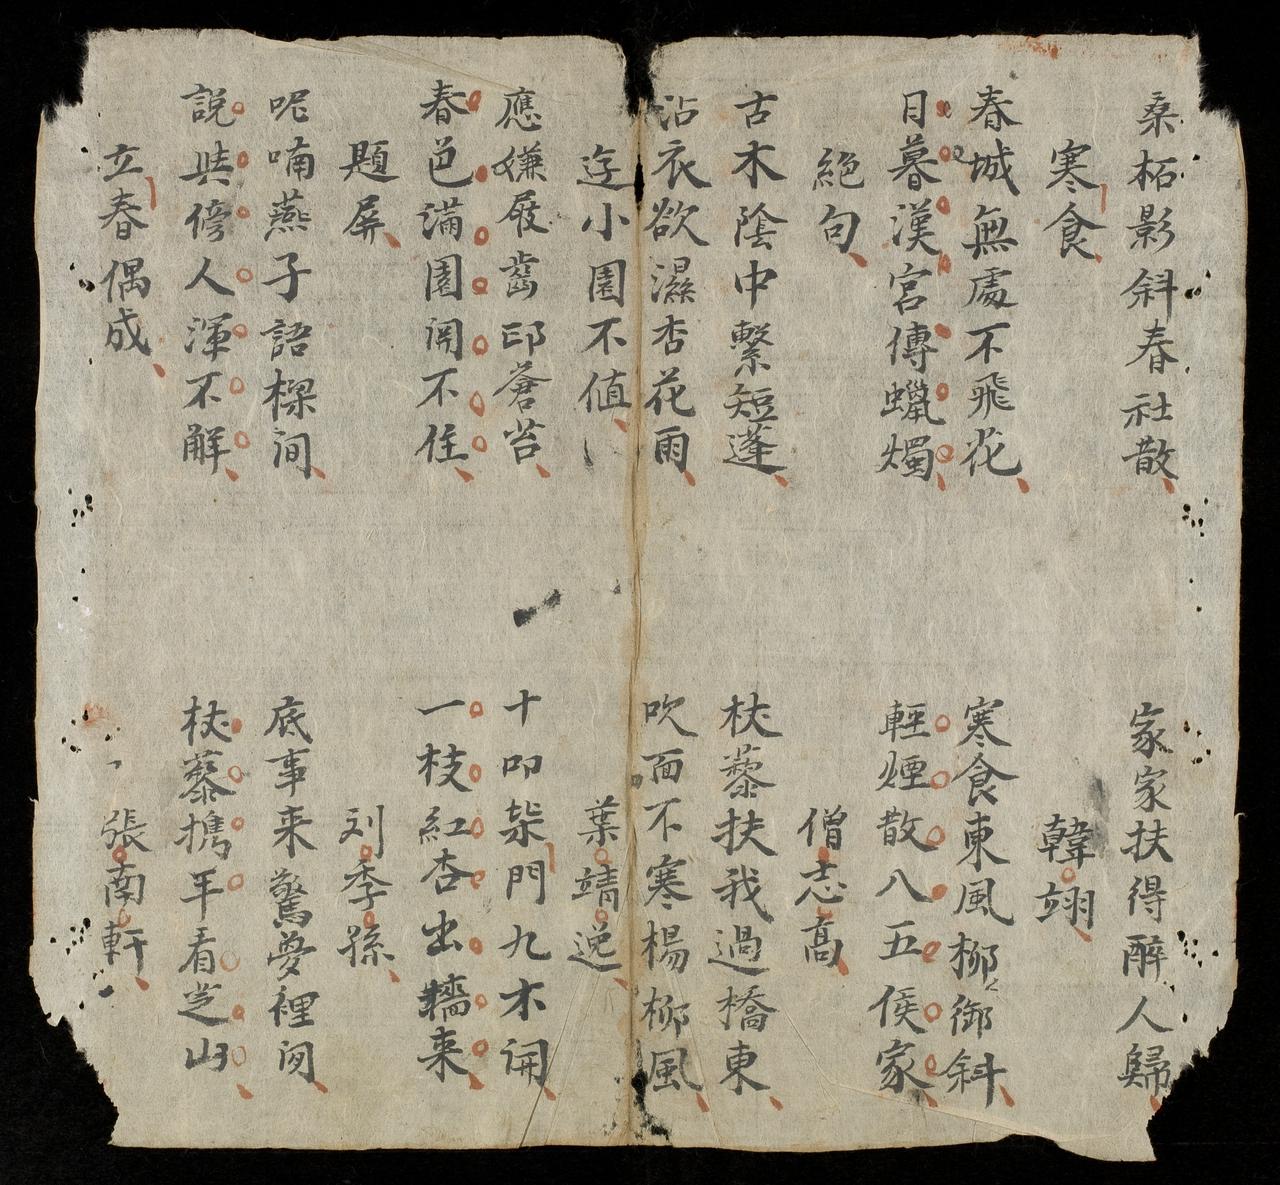 桑柘影斜春社散
家家扶得醉人歸
寒食
韓翃
春城無處不飛花
寒食東風柳御斜
日暮漢宮傳蠟燭
輕煙散八五侯家
絕句
僧志高
古木陰中繫短蓬
杖藜扶我過橋東
沾衣欲濕杏花雨
吹面不寒楊柳風
小園不值
葉靖逸
應嫌屐齒印蒼苔
十叩柴門九木開
春色滿園関不住
一枝紅杏出墻來
題屏
刘季孫
呢喃燕子語樑间
底事来驚夢裡闲
說與傍人渾不解
杖藜携平看芝山
立春偶成
張南軒